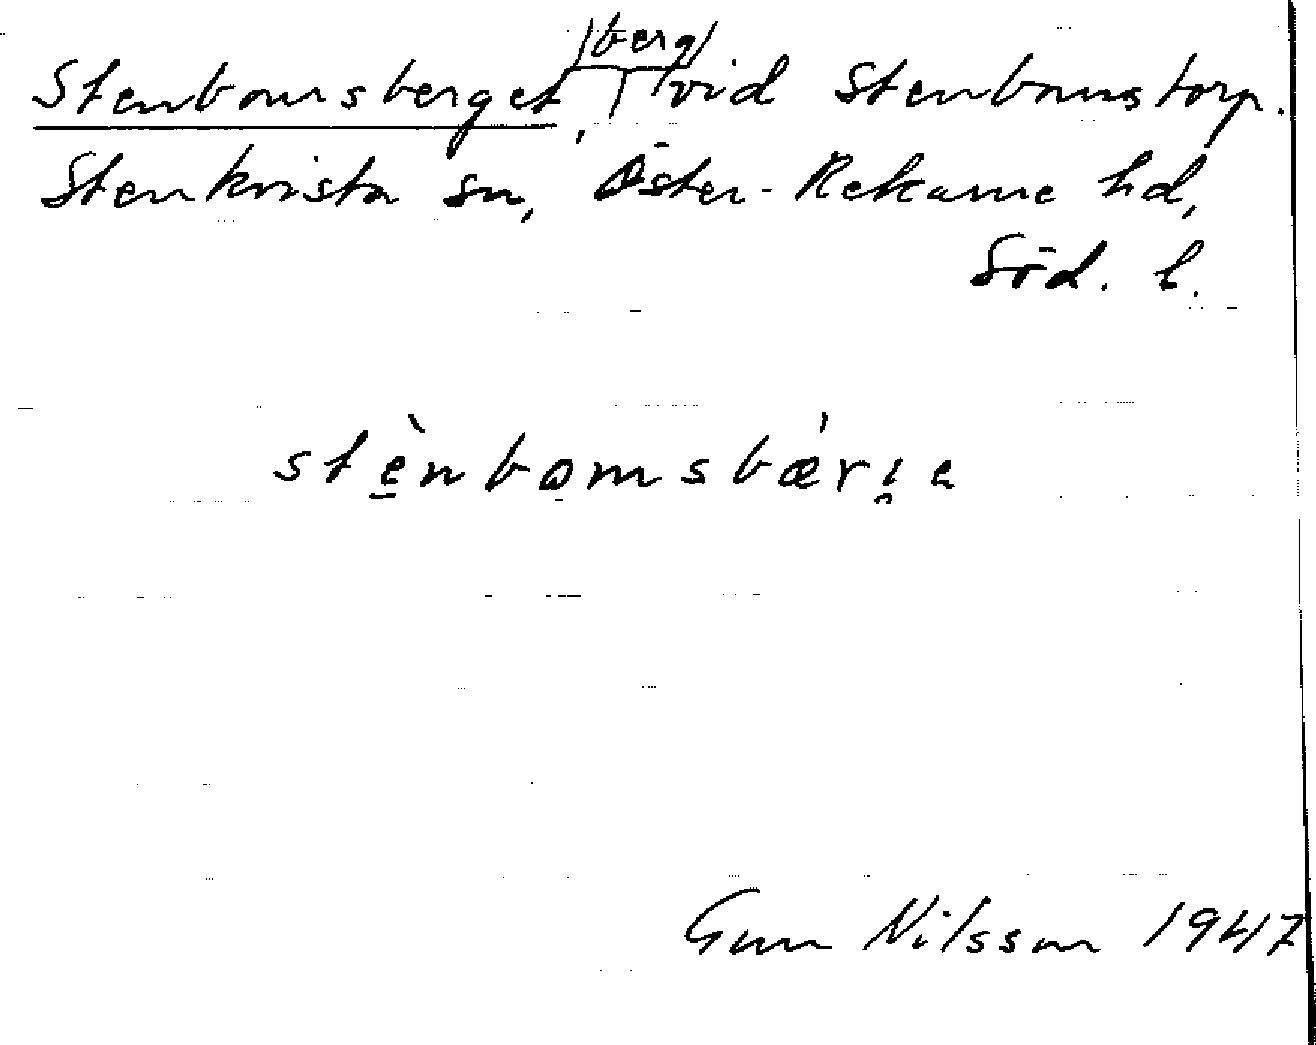 Stenbomsberget, /berg/ vid Stenbomstorp.
Stenkvista sn, Öster-Rekarne hd,
Söd. l.
stè̠nbo̠msbǽrı̥e
Gun Nilsson 1947